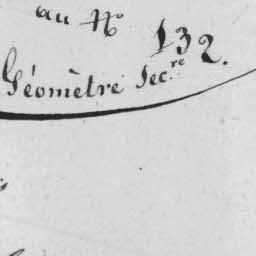 au N° 132.
Géomètre Sec.re